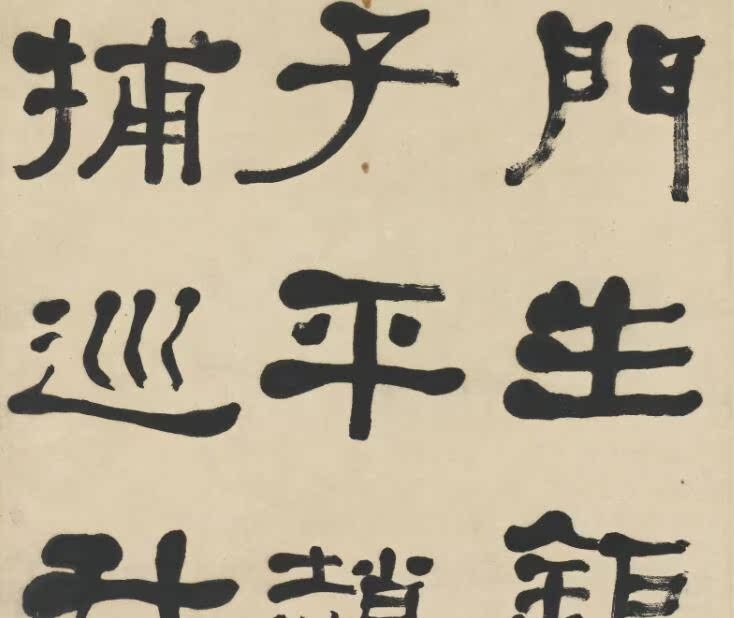 門生鉅
子平趙
捕巡